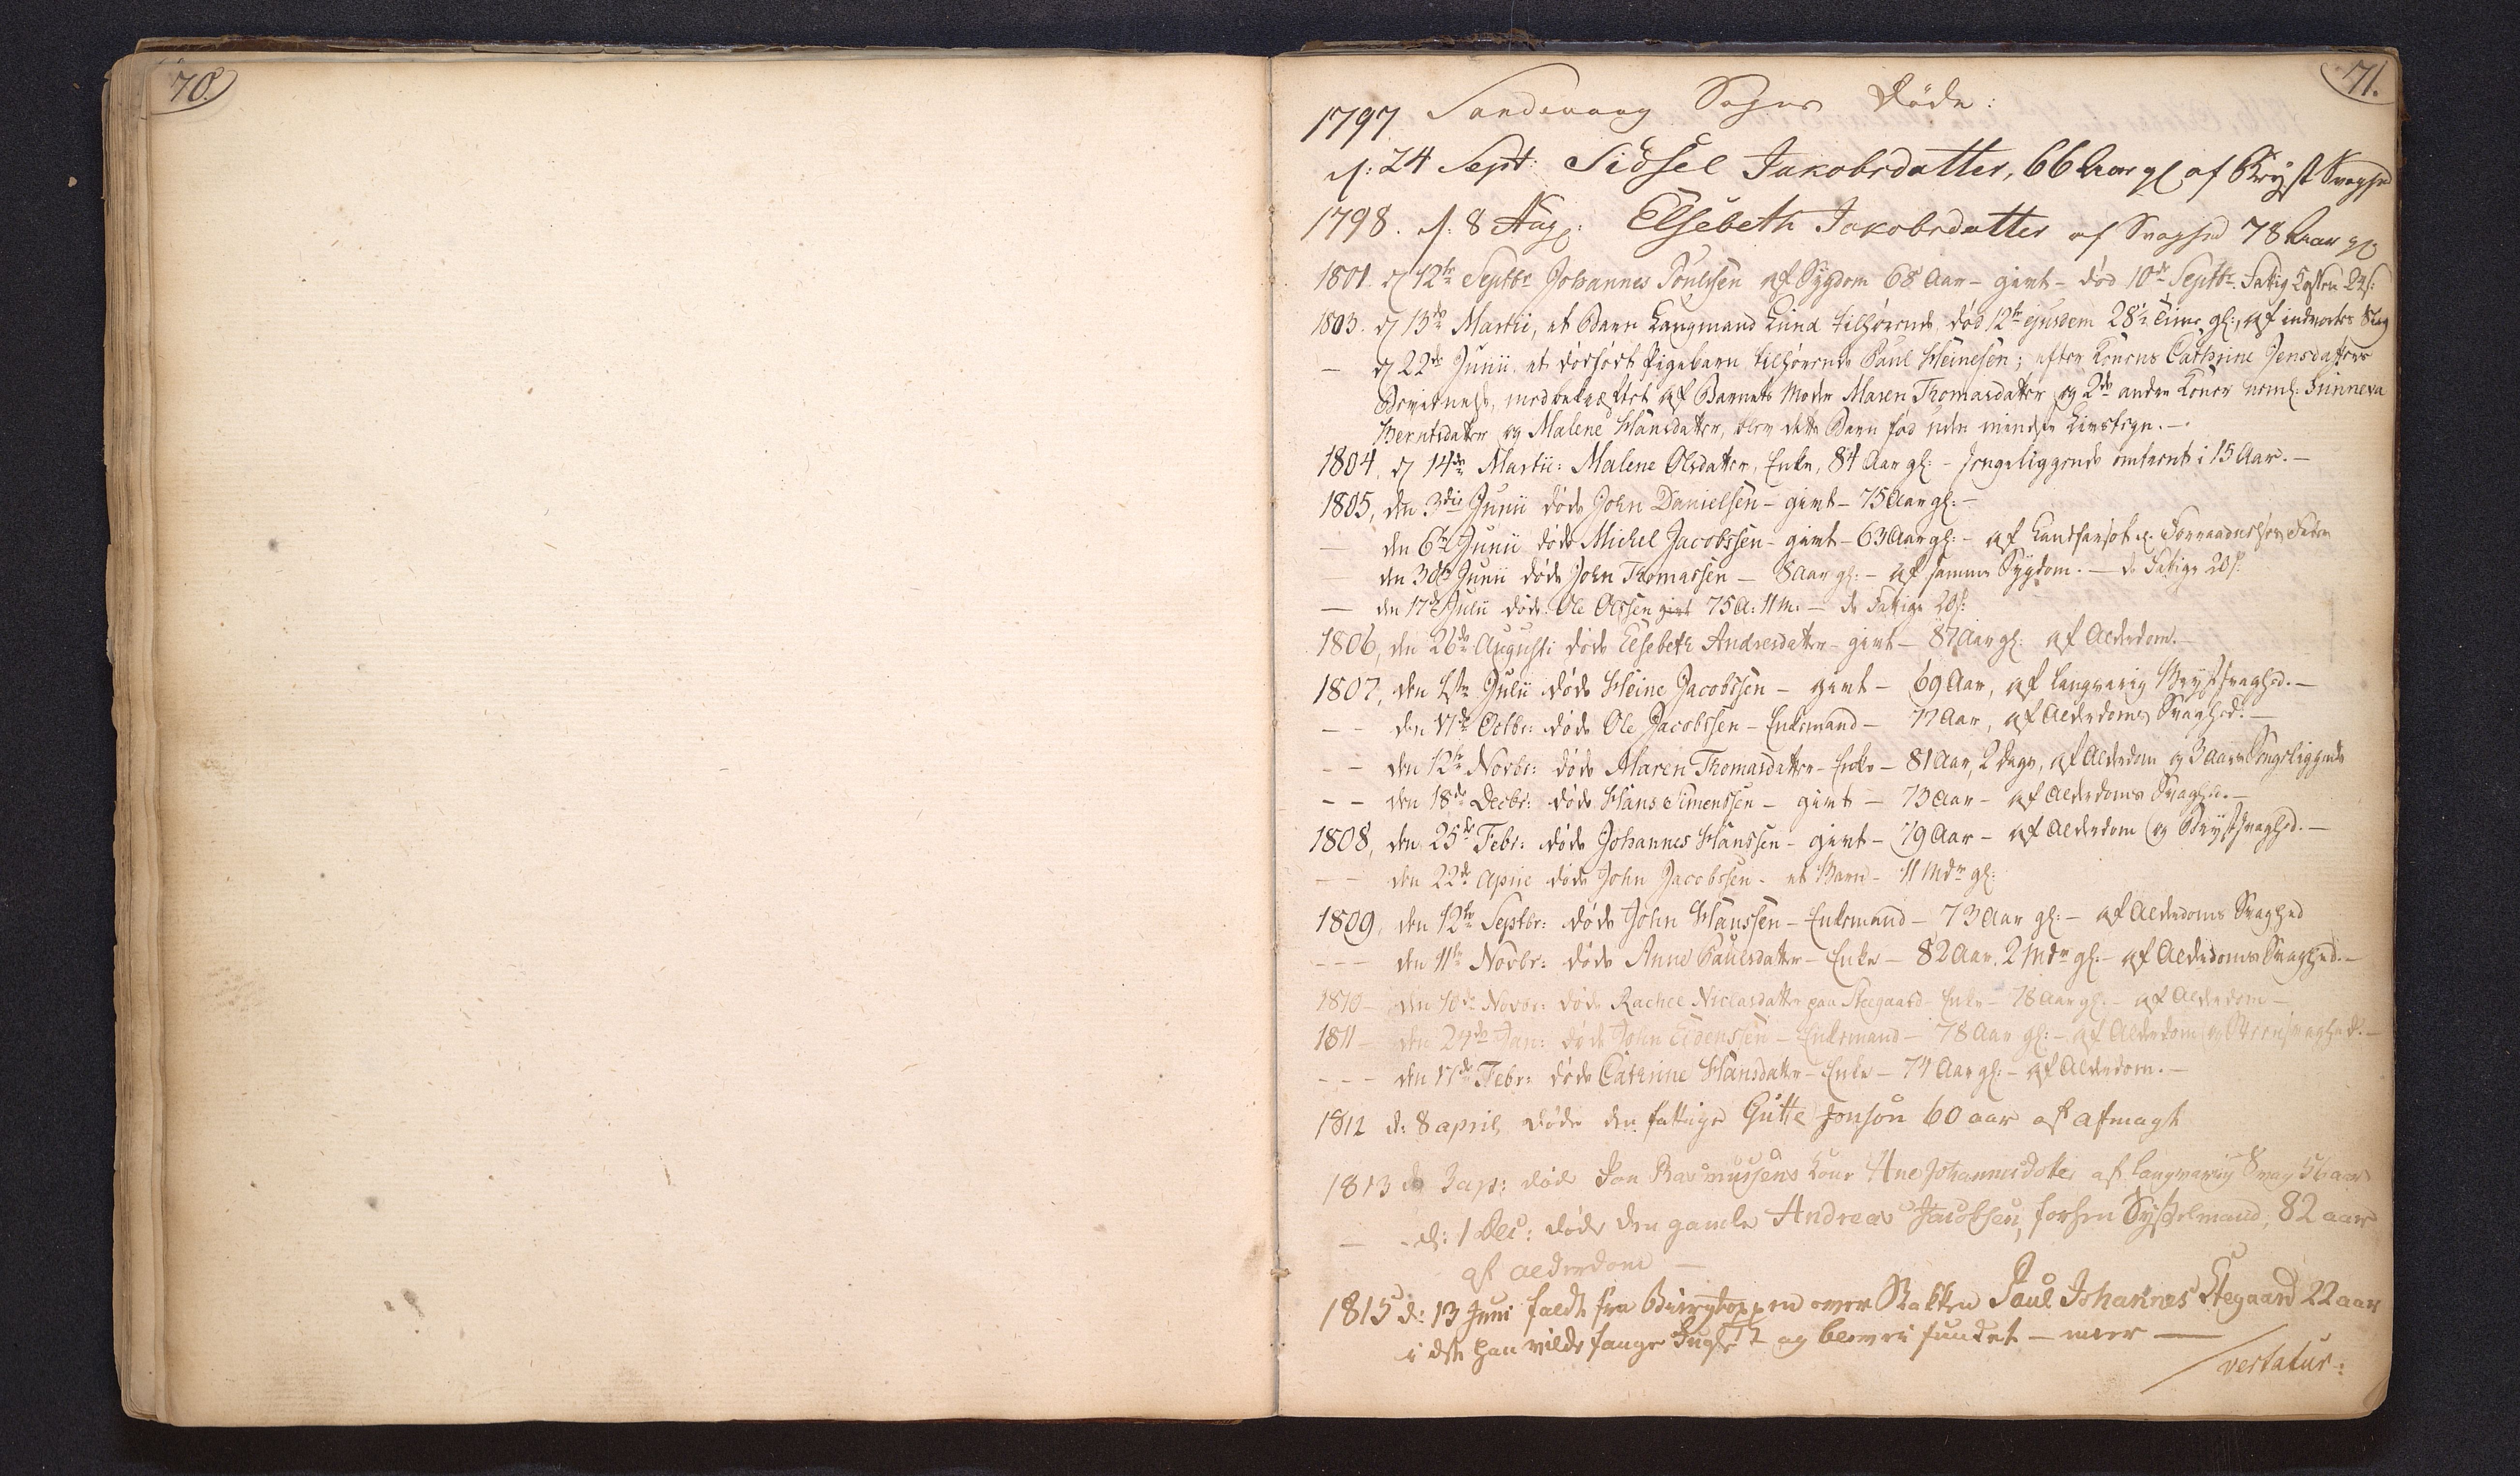 70.
71.
1797 Sandevaag Sogns Døde:
d: 24 Sept: Sidsel Jakobsdatter, 66 Aar gl af Bryst Svaghed
1798. d: 8 Aug: Elsebeth Jakobsdatter af Svaghed 78 Aar gl
1801. d 12te Septbr Johannes Poulssen af Sygdom 68 Aar - givt - død 10de Septbr. Fattig 24 s:
1803. d 13de Martii, et Barn Langmand Lund tilhørende, død 12te ejusdem 28½ Time gl:, af indvortes Slag
— d 22de Junii et dødfødt Pigebarn tilhørende Paul Heinesen; efter Konens Cathrine Jensdatters
Bevidnelse, medbekræftet af Barnets Moder Maren Thomasdatter og 2de andre Koner neml: Sunneva
Berntsdatter og Malene Hansdatter, blev dette Barn fød uden mindste Livstegn. —
1804, d 14de Martii: Malene Olsdatter, Enke, 84 Aar gl: - sengeliggende omtrent i 15 Aar. —
1805, den 3die Junii døde John Danielsen - givt - 75 Aar gl: —
— den 6te Junii døde Michel Jacobssen - givt - 63 Aar gl: - af Landfarsot
den 30te Junii døde John Thomassen — 8 Aar gl: - af samme Sygdom. — de Fattige 20 s:
— den 17de Julii døde Ole Olssen givt 75 A: 11 M. — de Fattige 20 s:
1806, den 26de Augusti døde Elsebeth Andreasdatter - givt — 87 Aar gl: af Alderdom. —
1807, den 1ste Julii døde Heine Jacobssen — givt — 69 Aar, af langvarig Brystsvaghed. —
— — den 17de Octbr: døde Ole Jacobssen - Enkemand — 77 Aar, af Alderdoms Svaghed. —
— — den 12te Novbr: døde Maren Thomasdatter - Enke — 81 Aar, 2 Dage, af Alderdom og 3 Aars Sengeliggende
— — den 18de Decbr: døde Hans Simenssen — givt — 73 Aar — af Alderdoms Svaghed. —
1808, den 25de Febr: døde Johannes Hanssen — givt — 79 Aar — af Alderdom og Brystsvaghed. —
— — den 22de April døde John Jacobssen - et Barn - 11 Mdr gl:
1809, den 12te Septbr: døde John Hanssen — Enkemand — 73 Aar gl: — af Alderdoms Svaghed
— — — den 11te Novbr: døde Anne Paulsdatter — Enke — 82 Aar. 2 Mdr gl: - af Alderdoms Svaghed. —
1810 — den 10de Novbr: døde Rachel Niclasdatter paa Stegaard - Enke — 78 Aar gl: — af Alderdom —
1811 — den 24de Jan: døde John Eidenssen — Enkemand — 78 Aar gl: — af Alderdom og Brystsvaghed. —
— — — den 17de Febr: døde Cathrine Hansdatter - Enke — 74 Aar gl: — af Alderdom. —
1812 d: 8 april døde den fattige Gutte Jonson 60 aar af afmagt
1813 d 3 apr: døde Jon Rasmussens Kone Ane Johannisdotter af langvarig Svag 56 aar
— d: 1 Dec: døde den gamle Andreas Jacobsen, forhen Sysselmand, 82 aar
af alderdom —
1815 d: 13 Juni faldt fra Biergtoppen over Bakken Poul Johannes Stegaard 22 aar
i det han vilde fange Fugle og blev ei fundet — meer —
vertatur: